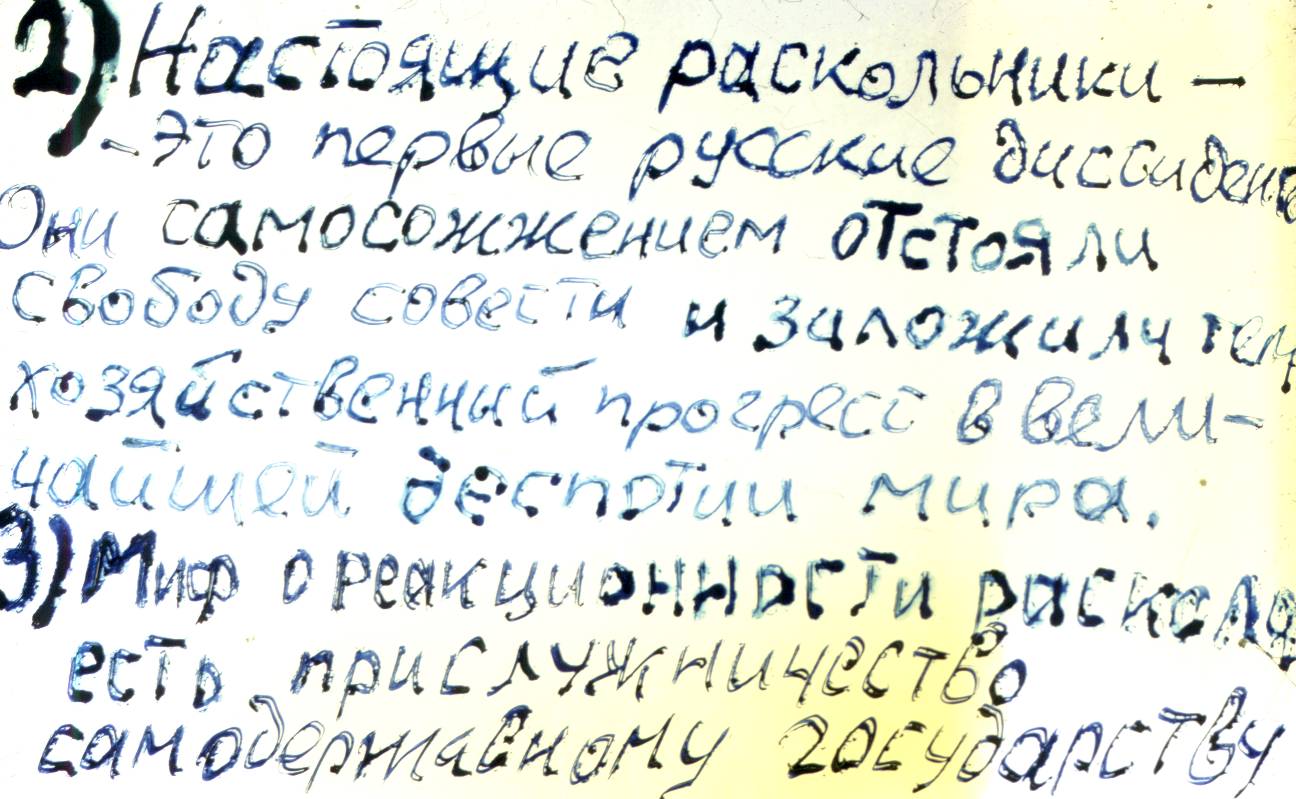 2) Настоящие раскольники –
- это первые русские диссидент
Они самосожжением отстояли
свободу совести и заложили тем
хозяйственный прогресс в вели-
чайшей деспотии мира.
3) Миф о реакционности раскола
есть прислужничество
самодержавному государству